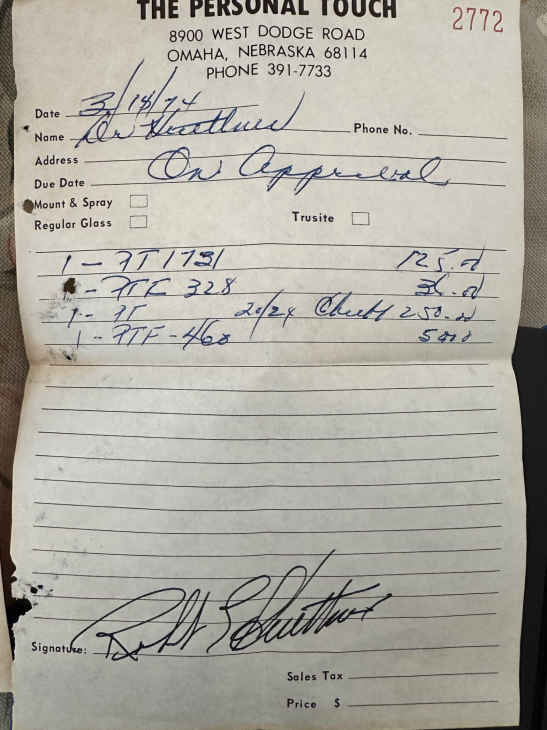 THE PERSONAL TOUCH
2772
8900 WEST DODGE ROAD
OMAHA, NEBRASKA 68114
PHONE 391-7733
Date 3/18/74
Name Dr Phone No.
Address
On Approval
Due Date
Mount & Spray
Regular Glass Trusite
1 - FT 1731 125.00
1 - FTE 328
1 - FT 20/24 250.00
1 - FTF - 460 5000
Signature: Robt E
Sales Tax
Price $